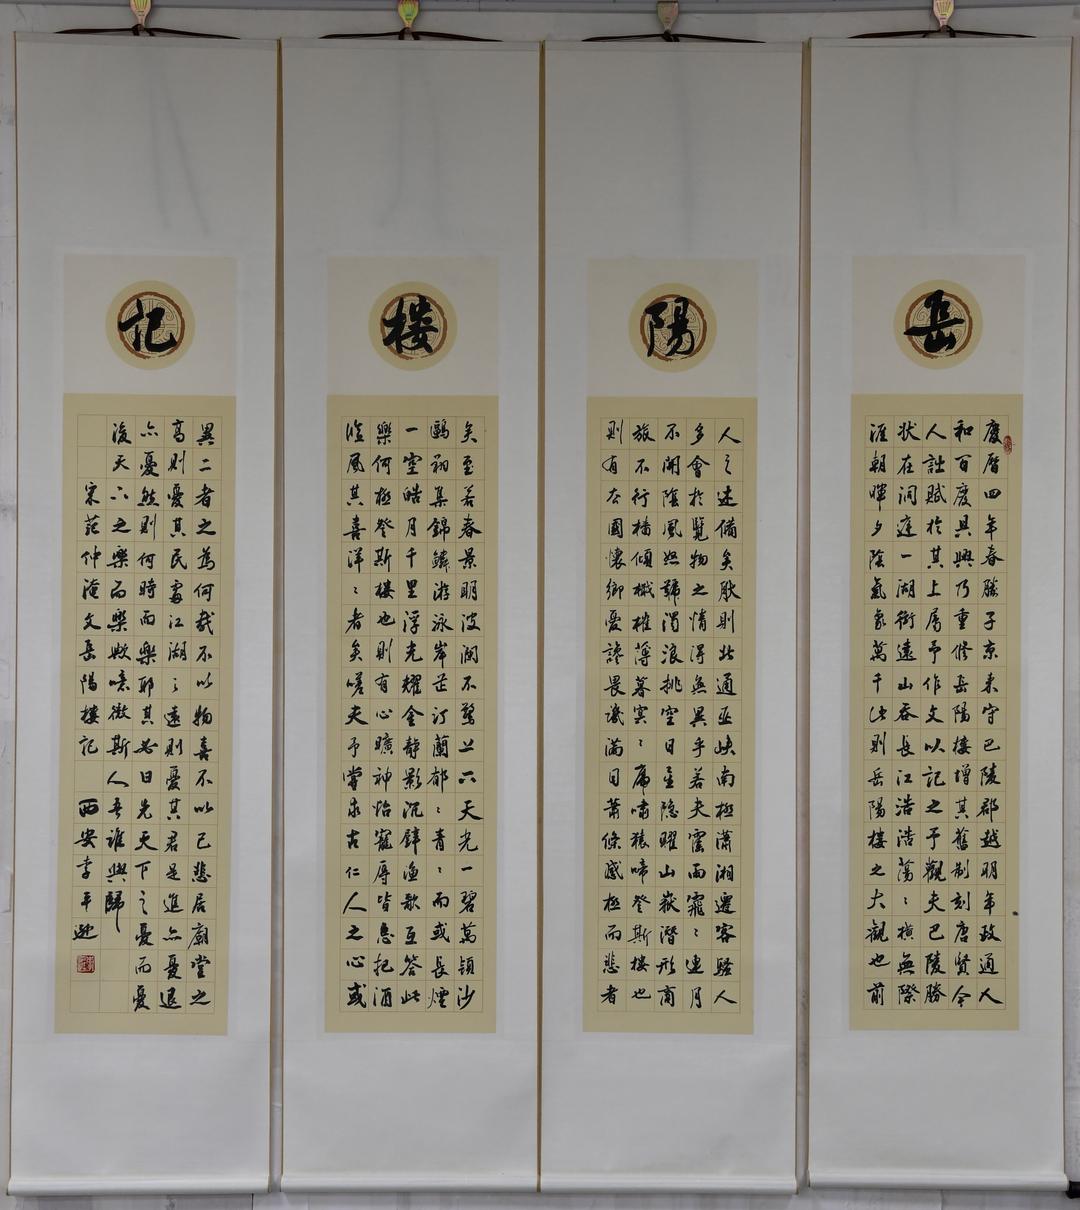 岳
慶曆四年春滕子京来守巴陵郡越明年政通人
和百廢具興乃重修岳陽樓增其舊制刻唐賢今
人詩賦於其上属予作文以記之予觀夫巴陵勝
状在洞庭一湖銜遠山吞長江浩浩蕩〻橫無際
涯朝暉夕陰氣象萬千此則岳陽樓之大觀也前
陽
人之述備矣然則北通巫峡南極瀟湘遷客騷人
多會於覽物之情得無異乎若夫霪雨霏〻連月
不開陰風怒號濁浪排空日星隐曜山嶽潛形商
旅不行檣傾楫摧薄暮冥〻虎嘯猿啼登斯樓也
則有去國懷鄉憂讒畏譏滿目蕭條感極而悲者
楼
矣至若春景明波瀾不驚上下天光一碧萬頃沙
鷗翔集錦鱗游泳岸芷汀蘭郁〻青〻而或長煙
一空皓月千里浮光耀金靜影沉璧漁歌互答此
樂何極登斯樓也則有心曠神怡寵辱皆忘把酒
臨風其喜洋〻者矣嗟夫予嘗求古仁人之心或
記
異二者之為何哉不以物喜不以己悲居廟堂之
高則憂其民處江湖之遠則憂其君是進亦憂退
亦憂然則何時而樂耶其必曰先天下之憂而憂
後天下之樂而樂歟噫微斯人吾誰與歸
宋范仲淹文岳陽樓記 西安李平